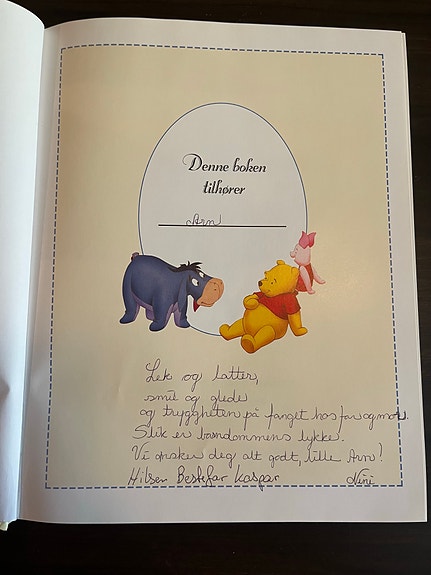 Denne boken
tilhører
Arn
Lek og latter,
smil og glede
og tryggheten på fanget hos far og mor.
Slik er barndommens lykke.
Vi ønsker deg alt godt, lille Arn!
Hilsen Bestefar Kaspar Nini